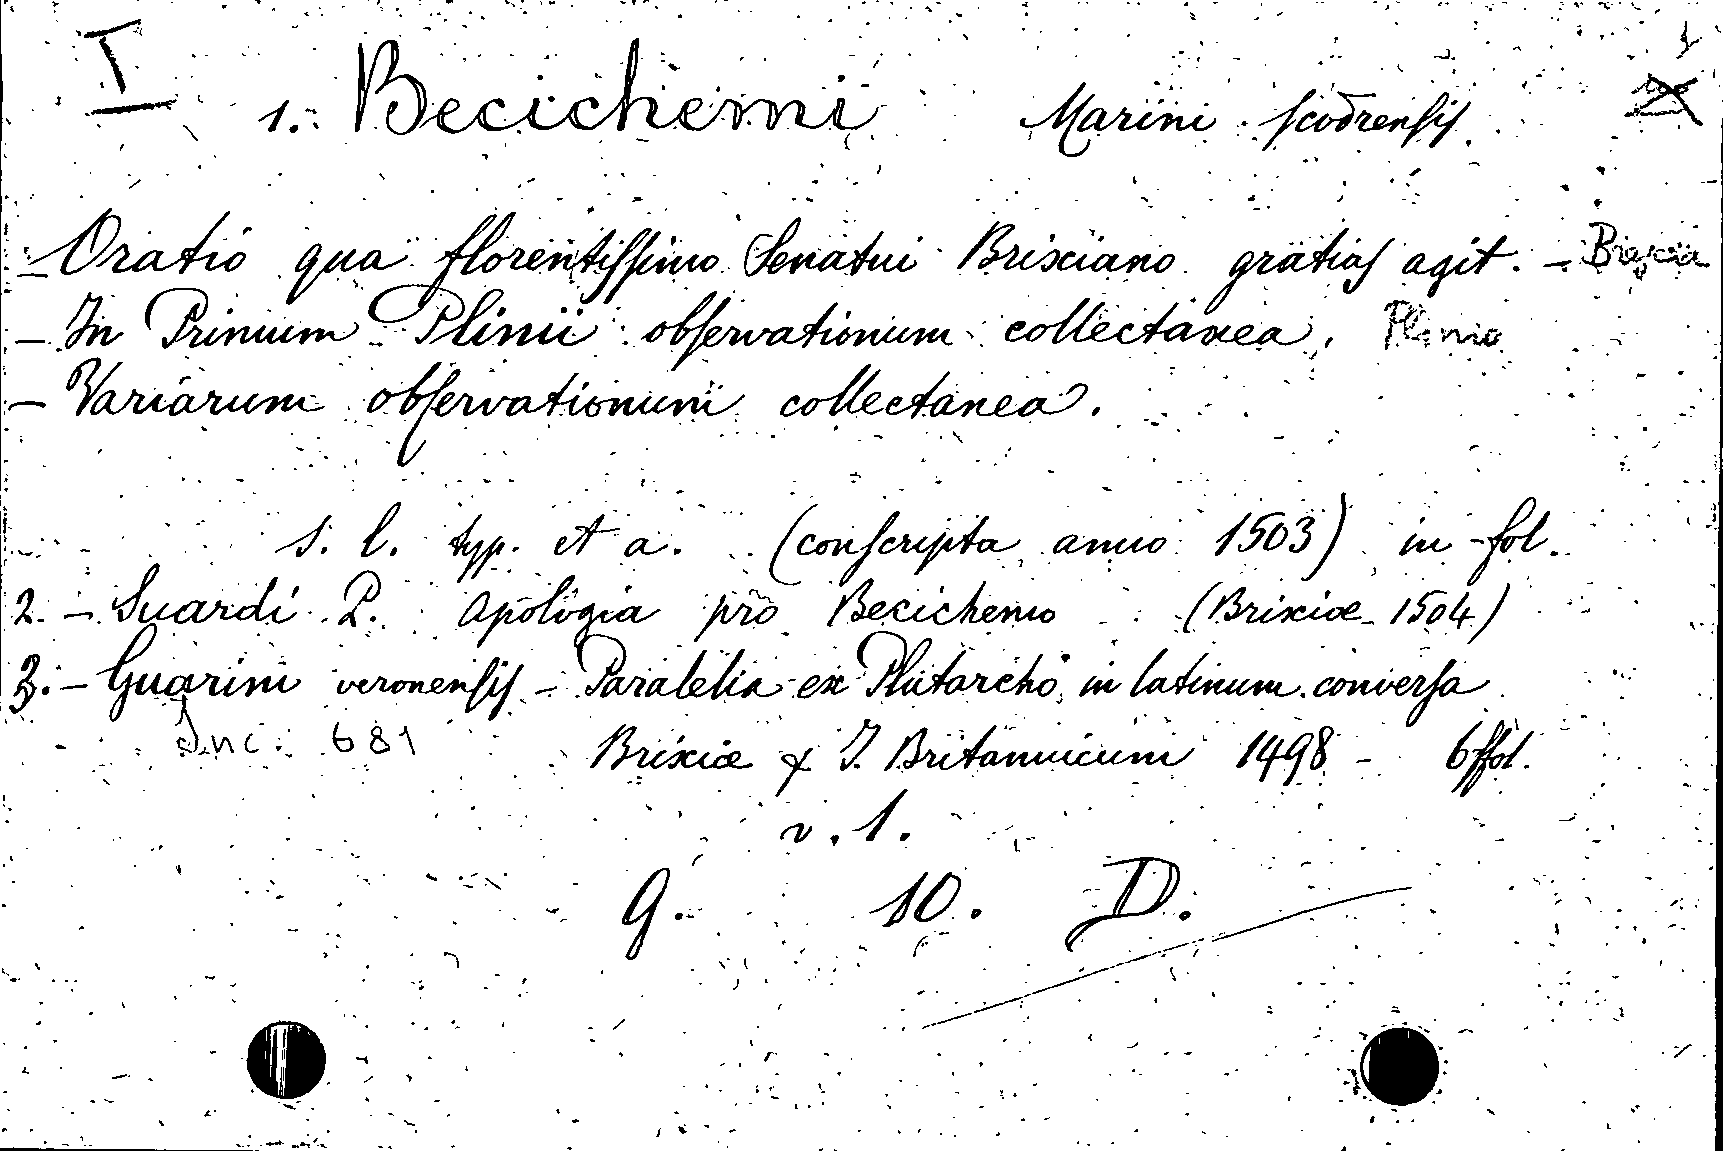 I
1. Becichemi Marini scodrensis.
- Oratio qua florentissimo Senatui Brixiano gratias agit. - Brescia
- In Primum Plinii observationum collectanea. Plinio
- Variarum observationum collectanea.
s. l. typ. et a. (conscripta anno 1503) in-fol.
2. - Suardi P. Apologia pro Becichemo (Brixiæ 1504)
3. - Guarini veronensis - Paralelia ex Plutarcho in latinum conversa
Inc. 681 Brixiæ J. Britannicum 1498 - 6ffol.
v. 1.
9. 10. D.